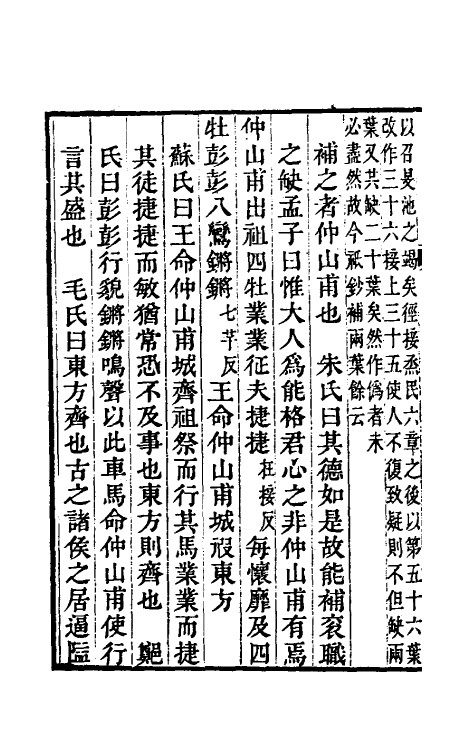 以召旻池之竭矣徑接烝民六章之後以第五十六葉
改作三十六接上三十五使人不復致疑則不但缺兩
葉又其缺二十葉矣然作僞者未
必盡然故今祇鈔補兩葉餘云
補之者仲山甫也　朱氏曰其德如是故能補衮職
之缺孟子曰惟大人爲能格君心之非仲山甫有焉
仲山甫出祖四牡業業征夫捷捷在接反每懷靡及四
牡彭彭八鸞鏘鏘七芊反王命仲山甫城彼東方
蘇氏曰王命仲山甫城齊祖祭而行其馬業業而捷
其徒捷捷而敏猶常恐不及事也東方則齊也　鄭
氏曰彭彭行貌鏘鏘鳴聲以此車馬命仲山甫使行
言其盛也　毛氏曰東方齊也古之諸侯之居逼隘